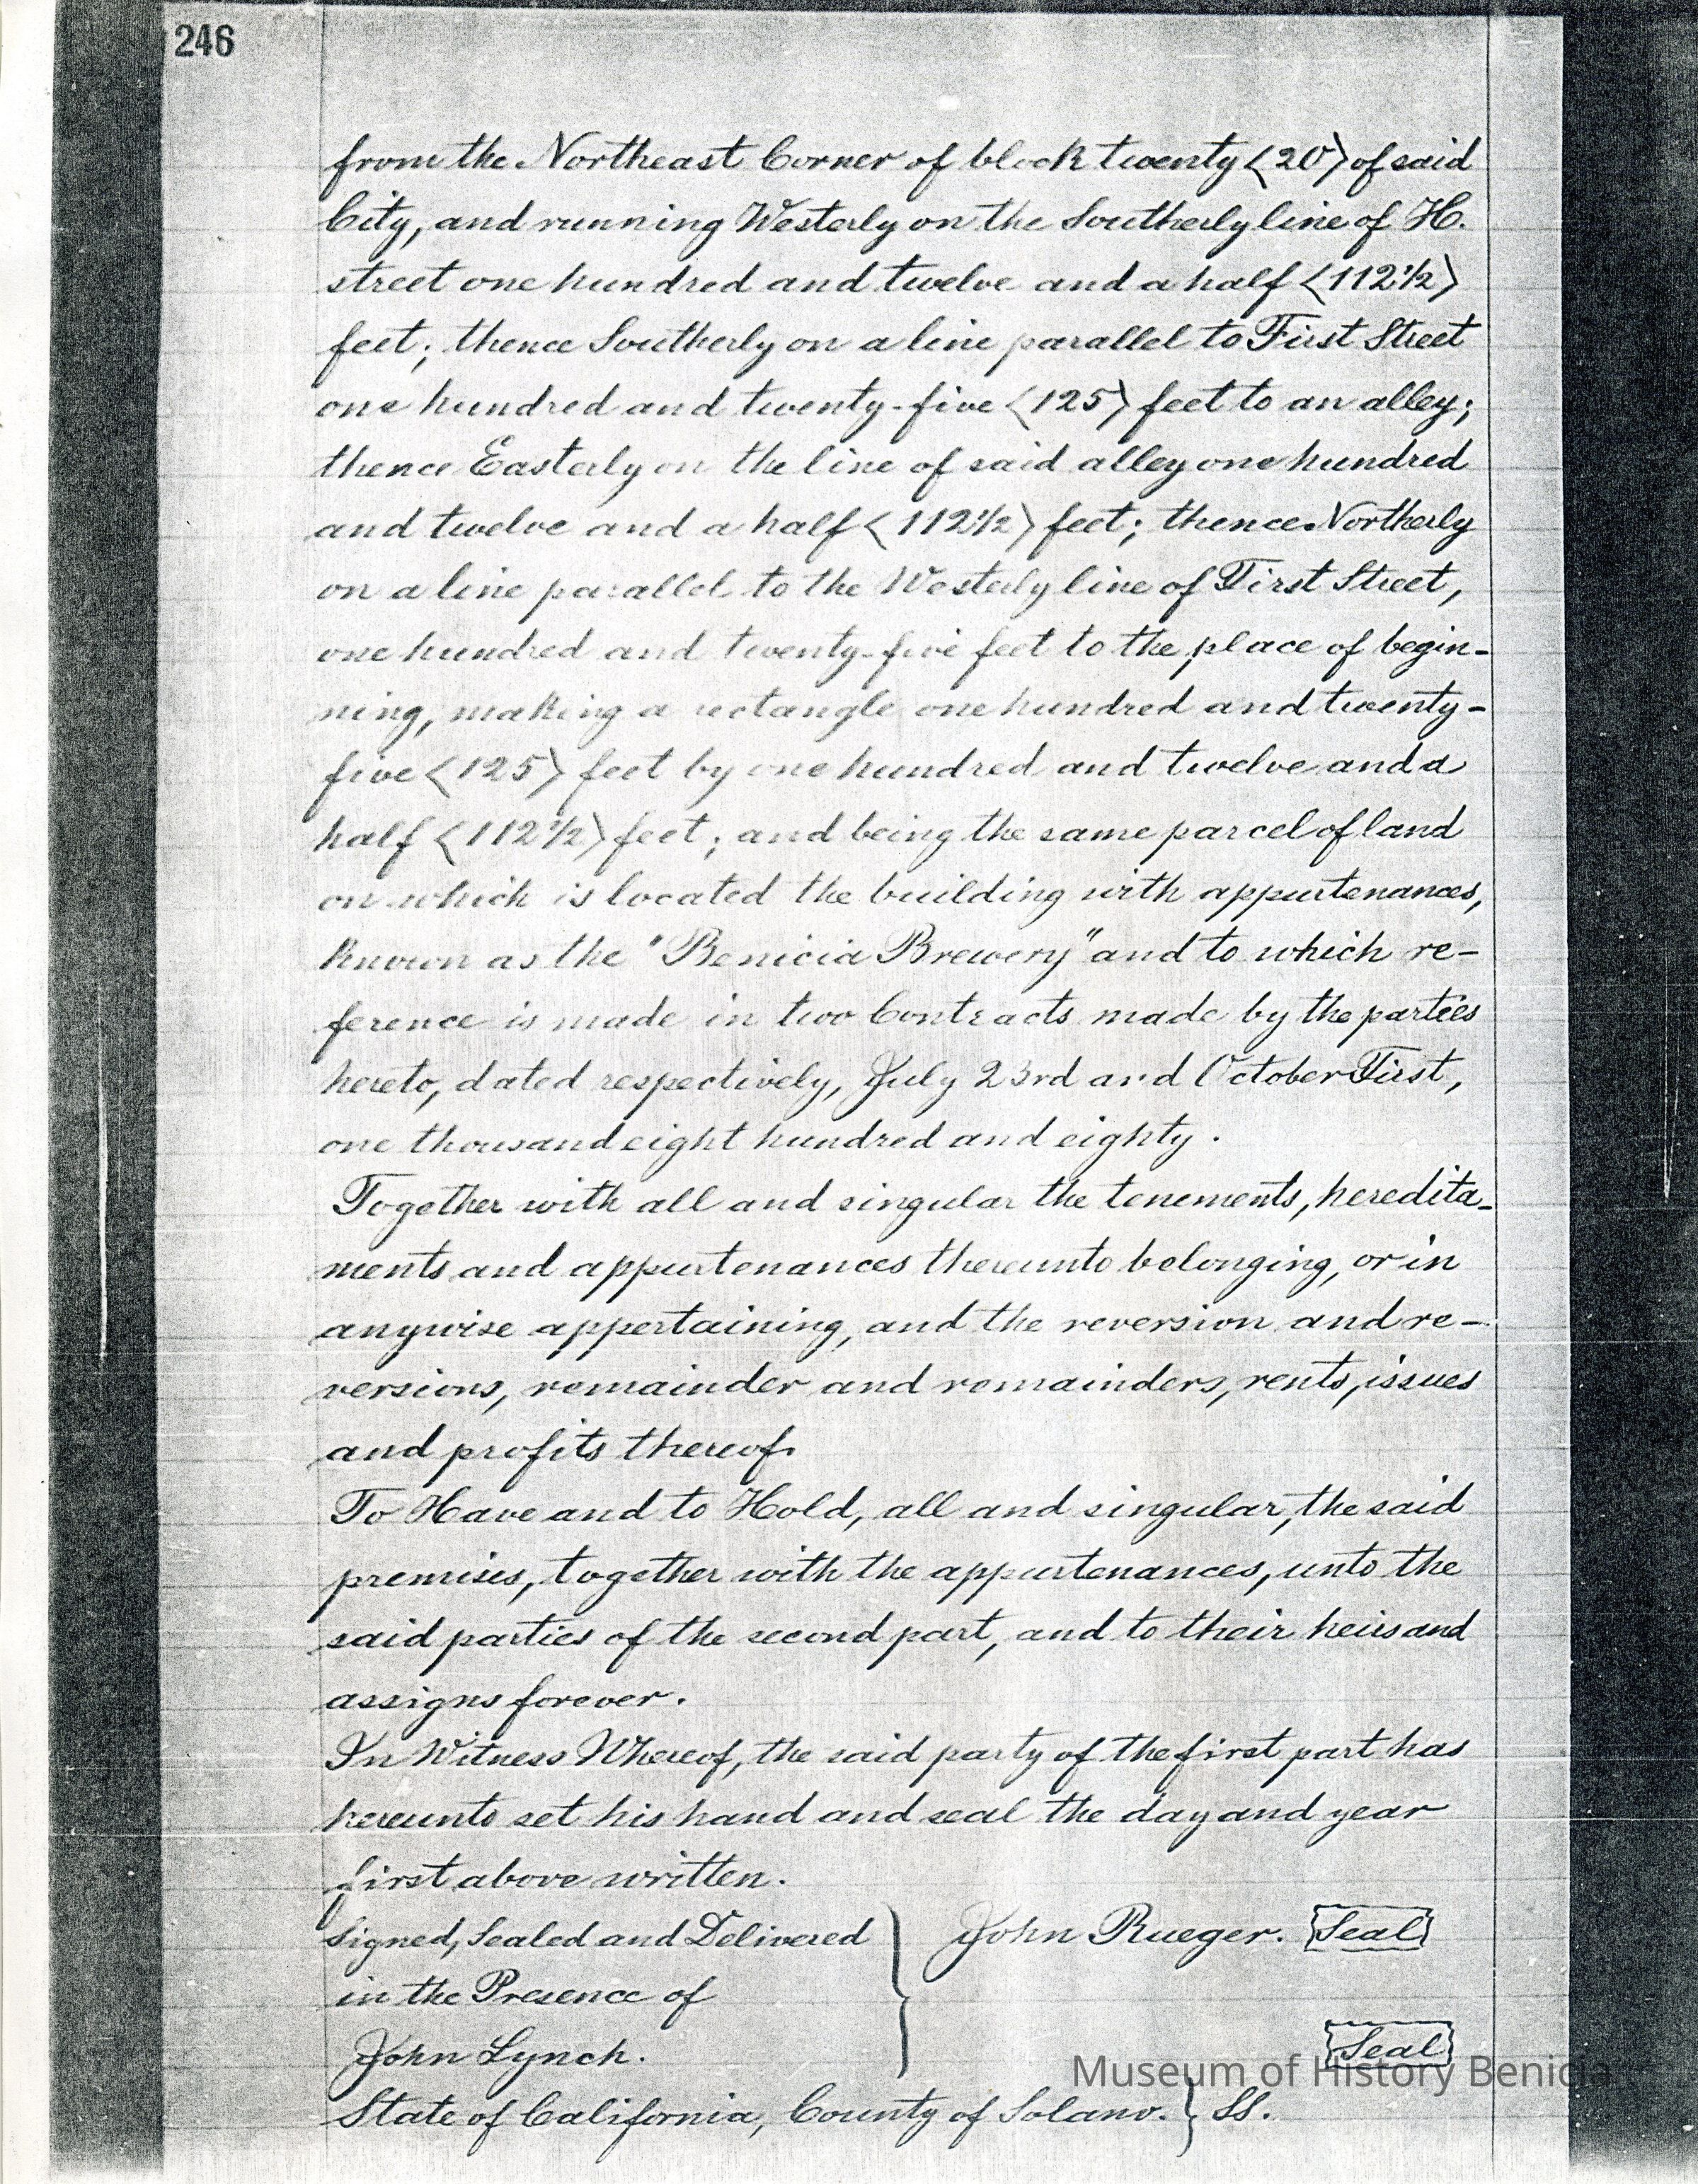 246
from the Northeast Corner of block twenty <20> of said
City, and running Westerly on the Southerly line of H.
street one hundred and twelve and a half <112½>
feet; thence Southerly on a line parallel to First Street
one hundred and twenty-five <125> feet to an alley;
thence Easterly on the line of said alley one hundred
and twelve and a half <112½> feet; thence Northerly
on a line parallel to the Westerly line of First Street,
one hundred and twenty-five feet to the place of begin-
ning, making a rectangle one hundred and twenty-
five <125> feet by one hundred and twelve and a
half <112½> feet; and being the same parcel of land
on which is located the building with appurtenances,
known as the "Benicia Brewery" and to which re-
ference is made in two Contracts made by the parties
hereto, dated respectively, July 23rd and October First,
one thousand eight hundred and eighty.
Together with all and singular the tenements, heredita-
ments and appurtenances thereunto belonging, or in
anywise appertaining, and the reversion and re-
versions, remainder and remainders, rents, issues
and profits thereof.
To Have and to Hold, all and singular, the said
premises, together with the appurtenances, unto the
said parties of the second part, and to their heirs and
assigns forever.
In Witness Whereof, the said party of the first part has
hereunto set his hand and seal the day and year
first above written.
Signed, Sealed and Delivered } John Rueger. Seal
in the Presence of
John Lynch. Seal
Museum of History Benicia
State of California, County of Solano. } SS.